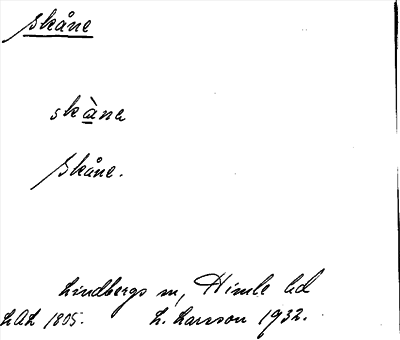 Skåne
skàna
Skåne.
Lindbergs m, Himle hd
LAL 1805. L. Larsson 1932.